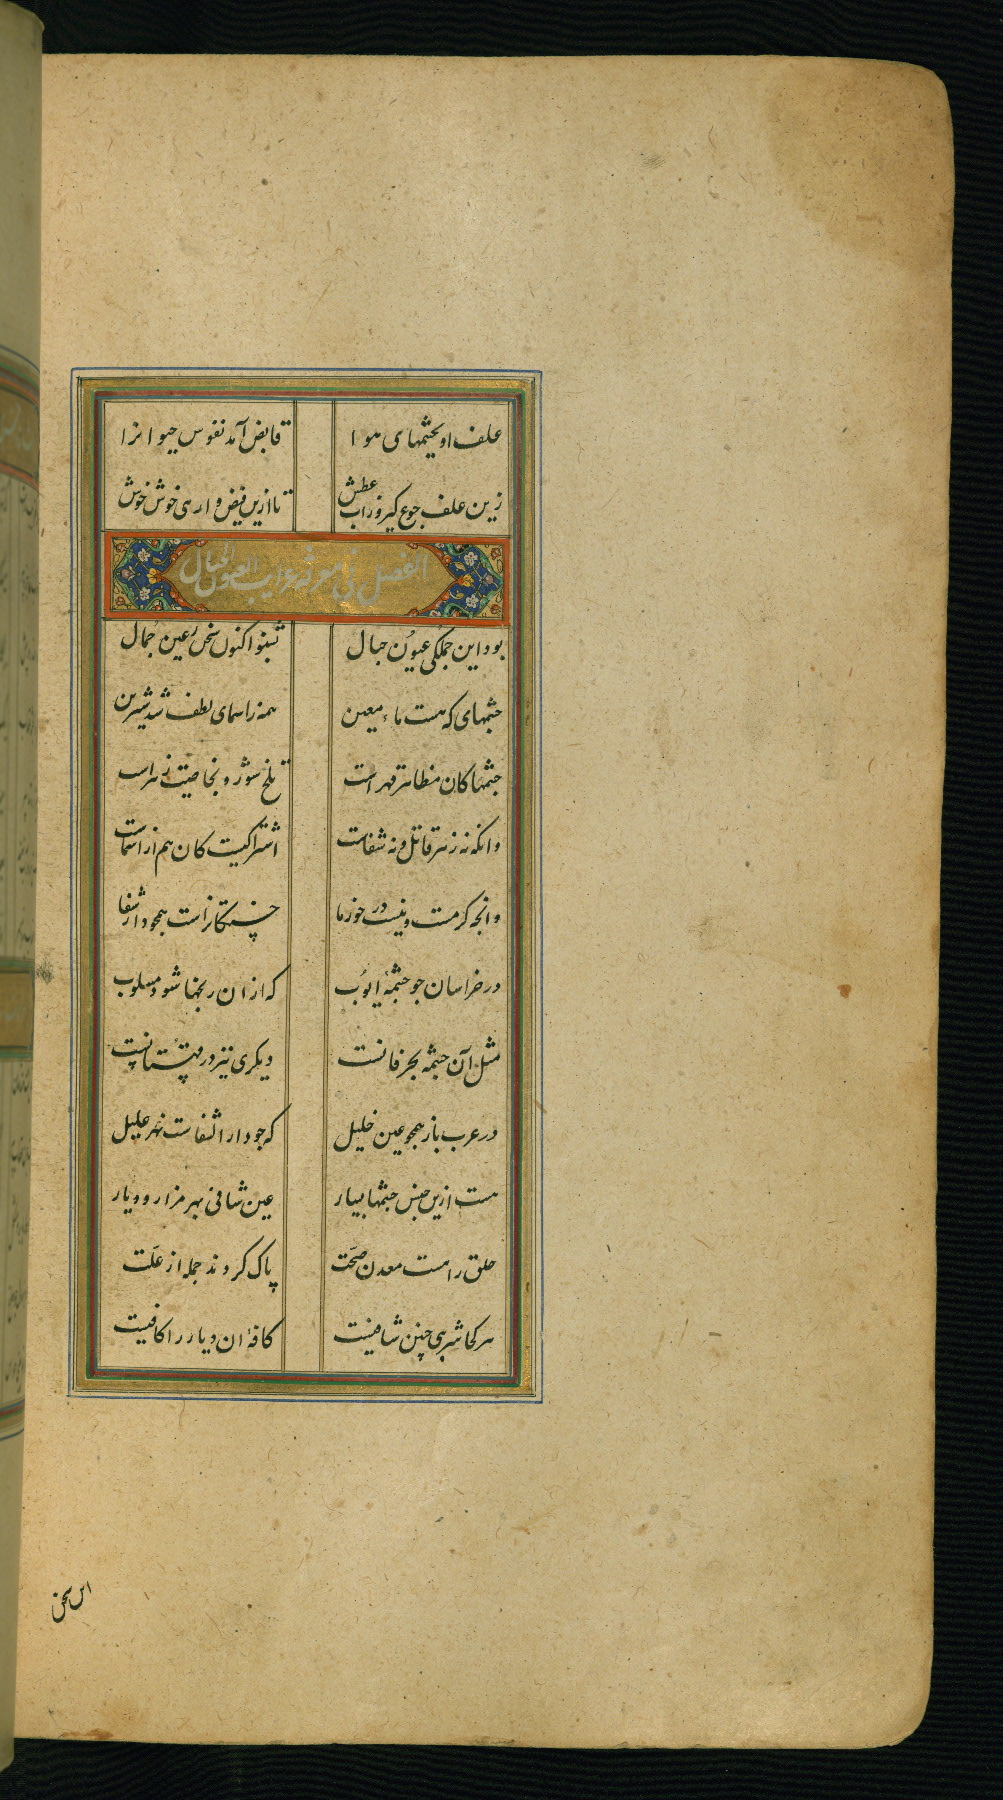 علف او چشمهای هوا قابض آمد نفوس حیوانرا
زین علف جوع کیر و زاب عطش تا ازین فیض وارهی خوش خوش
الفصل فی معرفة غرایب العیون الجبال
بود این جملکی عیون جبال بشنو اکنون سخن ز عین جمال
چشمهای که هست ماء معین همه ز اسمای لطف شد شیرین
چشمها کان مظاهر قهر است تلخ و شور و بخاصیت زهر است
وانکه نه زهر قاتل و نه شفاست اشتراکیست کان هم از اسماست
وانچه کرمست و نیست در خورما خستکانراست همچو دار شفا
در خراسان چو چشمهٔ ایوب که ازان رنجها شود مسلوب
مثل آن چشمه بحر فانیست دیکری نیز در قهستانیست
در عرب باز همچو عین خلیل که چو دار الشفاست بهر علیل
هست ازین جنس چشمها بسیار عین شافی بهر مزار و دیار
خلق را هست معدن صحت پاک کردند جمله از علت
هر کجا شربی چنین شافیست کافهٔ ان دیار را کافیست
این سخن